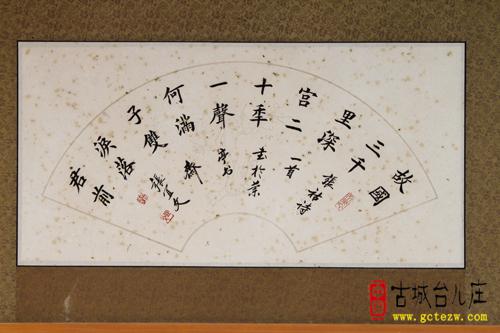 故國
三千
里深
張祜詩
宮二
一首
十年
書於
一聲
何滿
子雙
淚落
君前
古城台儿庄
www.gctezw.com